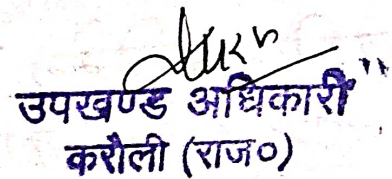 उपखण्ड अधिकारी"
करौली (राज०)